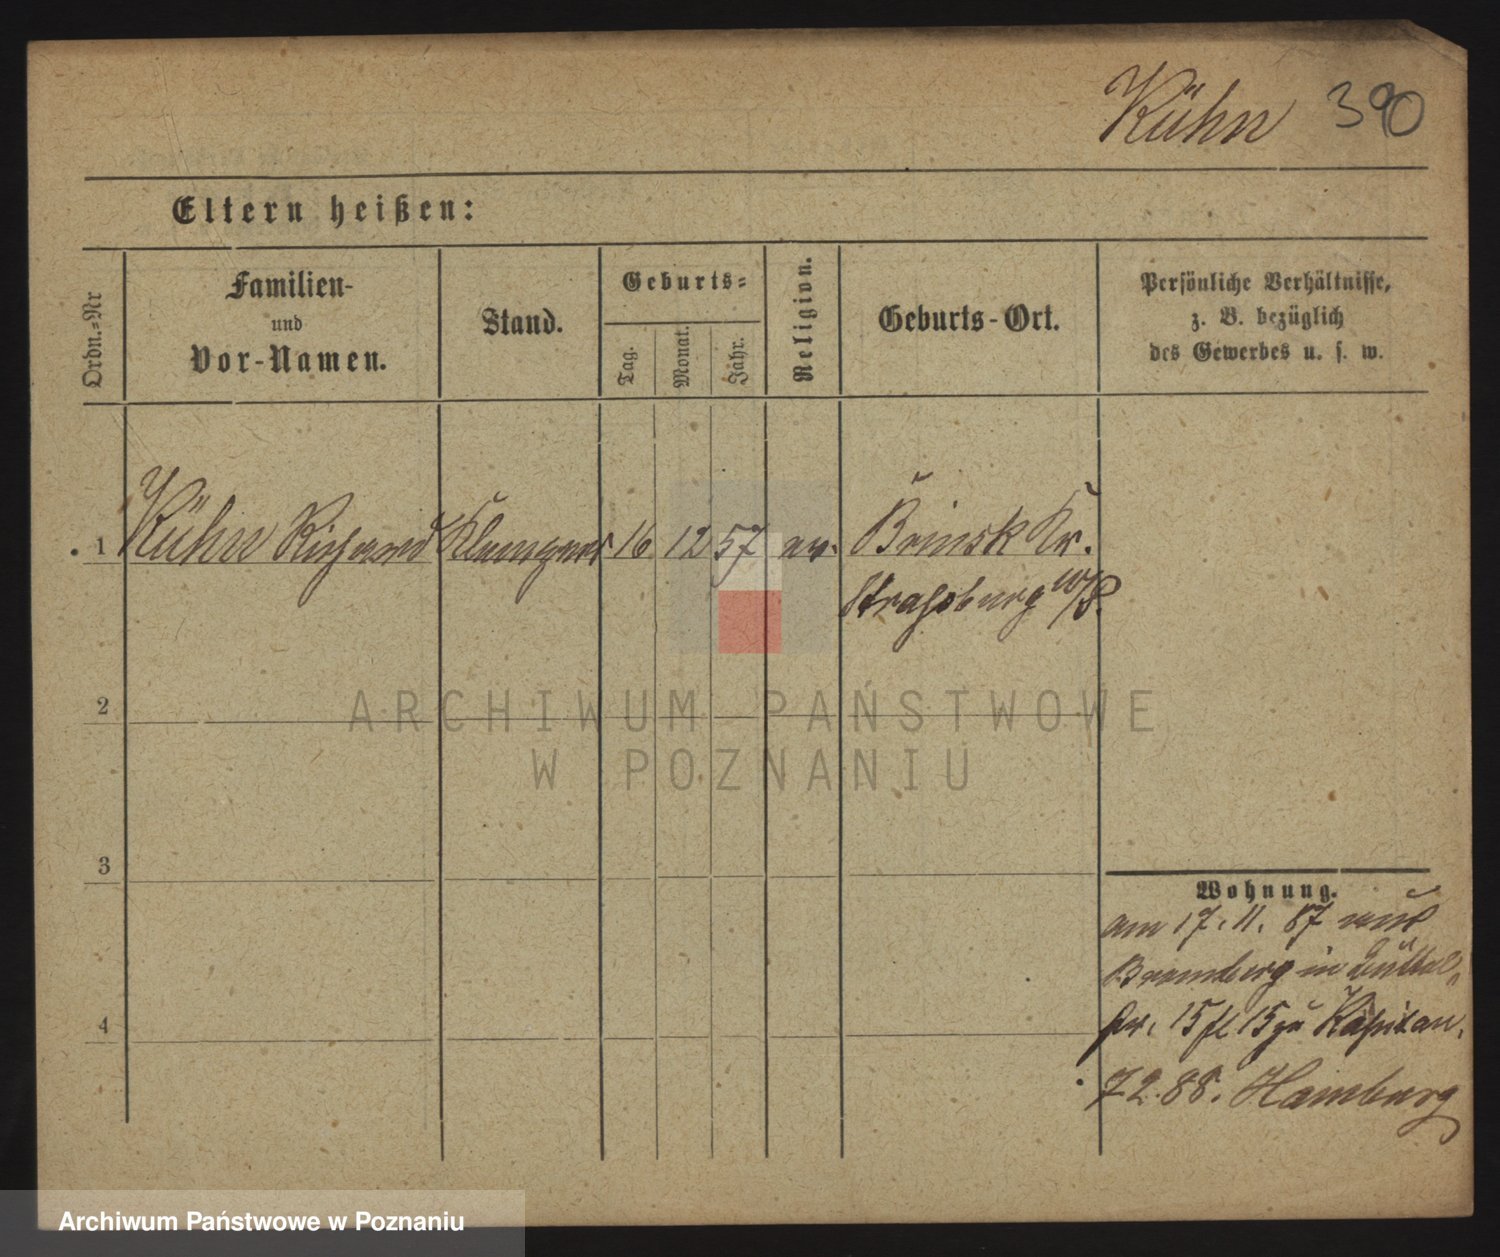 Kühn 390
Eltern heißen:
Ordn.=Nr
Familien-
und
Vor-Namen.
Stand.
Geburts=
Tag.
Monat.
Jahr.
Religion.
Geburts-Ort.
Persönliche Verhältnisse,
z. B. bezüglich
des Gewerbes u. s. w.
1 Kühn Richard Klempner 16 12 57 ev. Brinsk Kr.
Straßburg W/P.
2
3
4
Wohnung.
am 17. 11. 87 aus
Bromberg in
15 15 zu
7 2. 88. Hamburg
ARCHIWUM PAŃSTWOWE
W POZNANIU
Archiwum Państwowe w Poznaniu